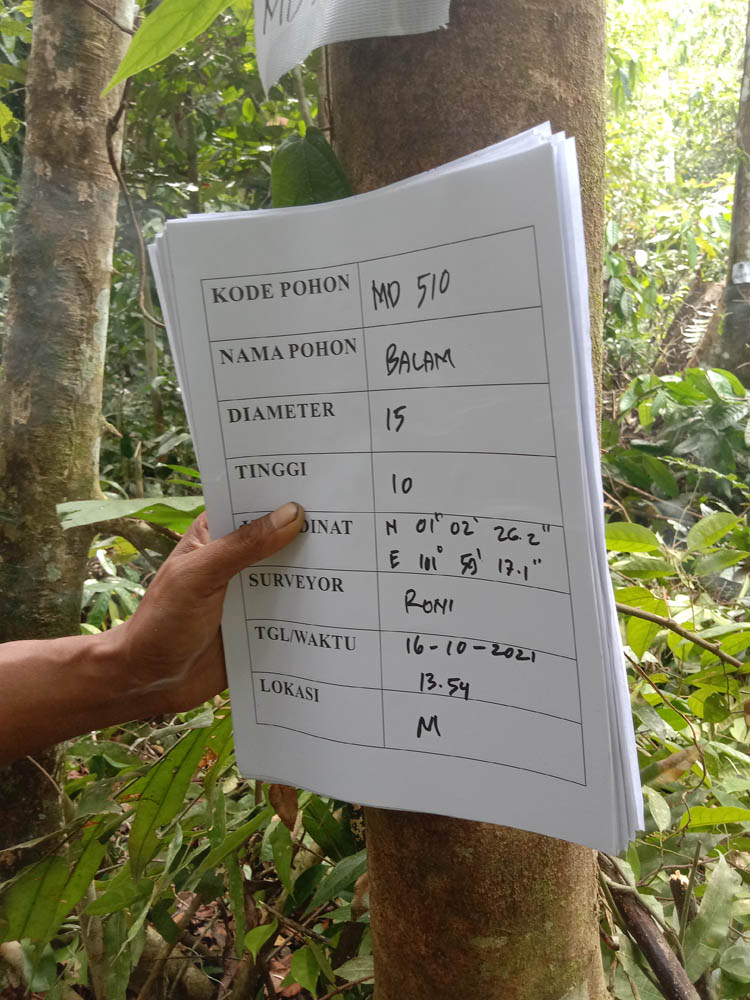 MD
KODE POHON MD 510
NAMA POHON BALAM
DIAMETER 15
TINGGI 10
DINAT N 01° 02' 26.2"
E 101° 59' 17.1"
SURVEYOR RONI
TGL/WAKTU 16-10-2021
13.54
LOKASI M